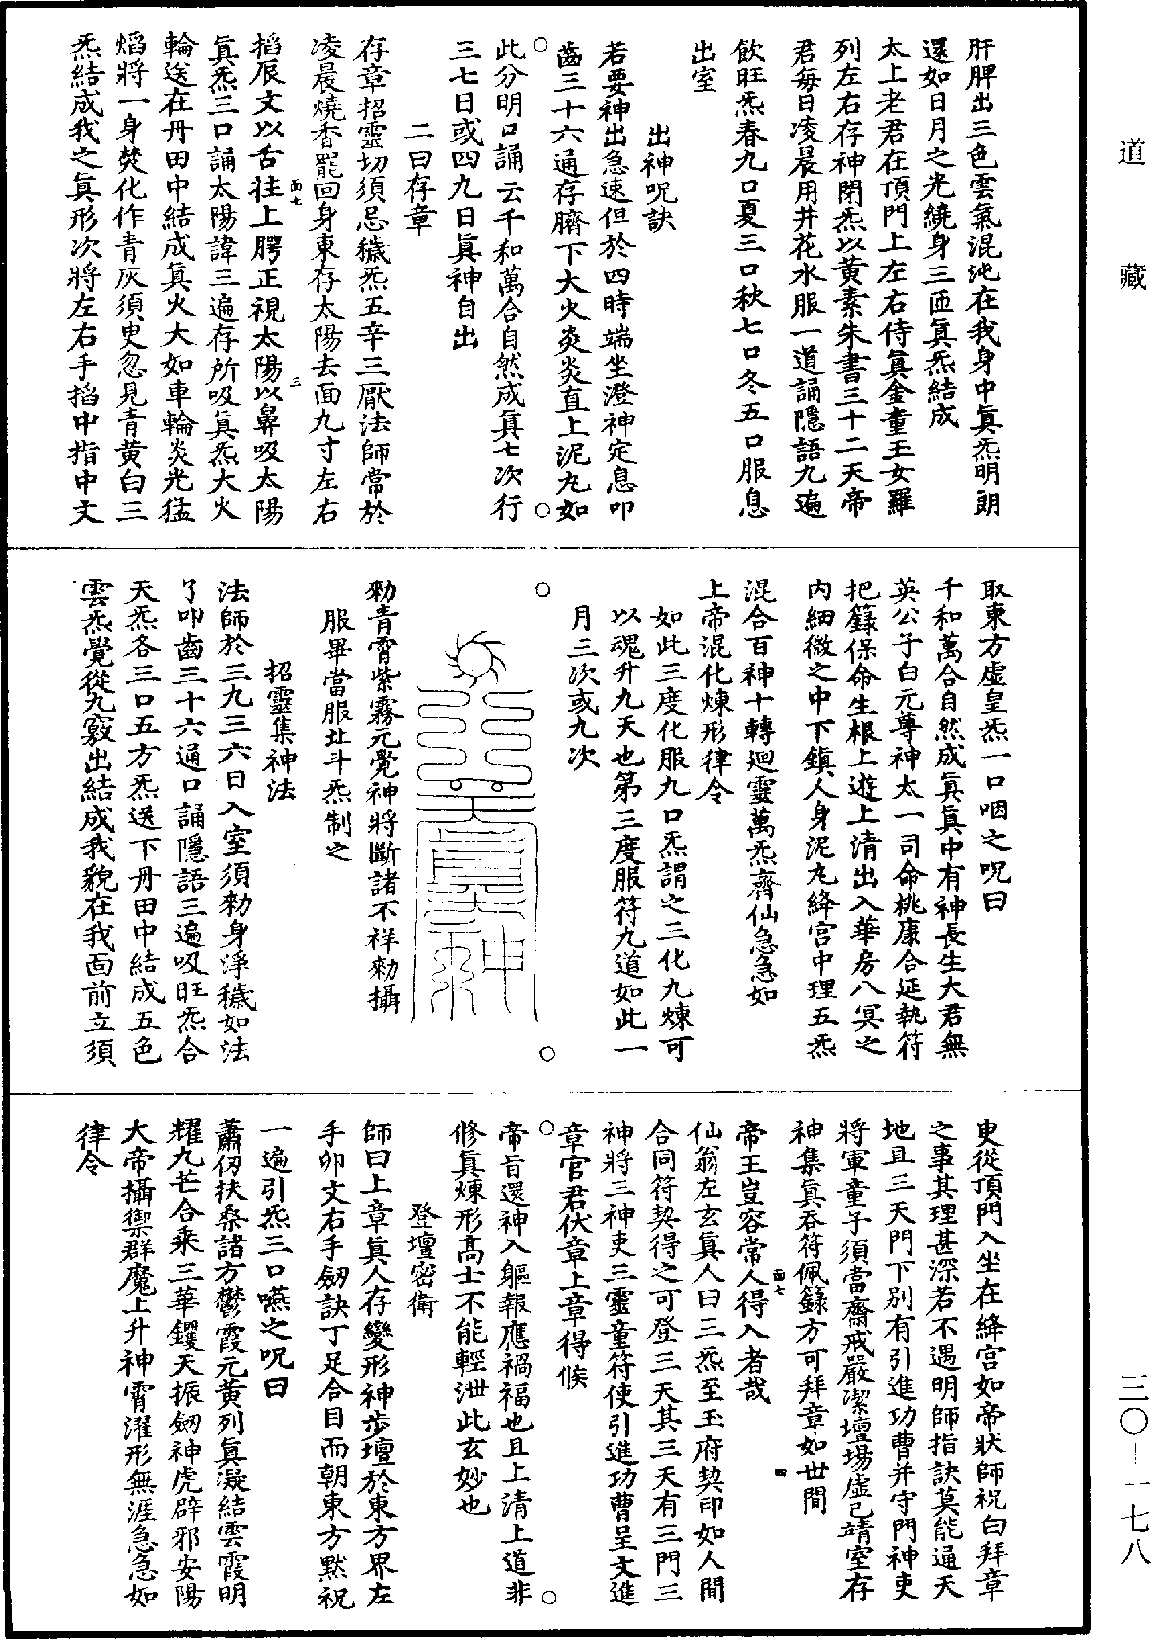 道藏
三〇——一七八
肝脾出三色雲氣混沌在我身中真炁明朗
還如日月之光繞身三匝真炁結成
太上老君在頂門上左右侍真金童玉女羅
列左右存神閉炁以黃素朱書三十二天帝
君每日凌晨用井花水服一道誦隱語九遍
飲旺炁春九口夏三口秋七口冬五口服息
出室
出神呪訣
若要神出急速但於四時端坐澄神定息叩
齒三十六通存臍下大火炎炎直上泥丸如
此分明口誦云千和萬合自然成真七次行
三七日或四九日真神自出
二曰存章
存章招靈切須忌穢炁五辛三厭法師常於
凌晨燒香罷回身東存太陽去面九寸左右
搯辰文以舌拄上腭正視太陽以鼻吸太陽
面七
三
真炁三口誦太陽諱三遍存所吸真炁大火
輪送在丹田中結成真火大如車輪炎光猛
熖將一身焚化作青灰須臾忽見青黃白三
炁結成我之真形次將左右手搯中指中文
取東方虛皇炁一口咽之呪曰
千和萬合自然成真真中有神長生大君無
英公子白元尊神太一司命桃康合延執符
把籙保命生根上遊上清出入華房八冥之
內細微之中下鎮人身泥丸絳宮中理五炁
混合百神十轉迴靈萬炁齊仙急急如
上帝混化煉形律令
如此三度化服九口炁謂之三化九煉可
以魂升九天也第三度服符九道如此一
月三次或九次
勑青霄紫霧元覺神將斷諸不祥勑攝
服畢當服北斗炁制之
招靈集神法
法師於三九三六日入室須勑身淨穢如法
了叩齒三十六通口誦隱語三遍吸旺炁合
天炁各三口五方炁送下丹田中結成五色
雲炁覺從九竅出結成我貌在我面前立須
臾從頂門入坐在絳宮如帝狀師祝白拜章
之事其理甚深若不遇明師指訣莫能通天
地且三天門下別有引進功曹并守門神吏
將軍童子須當齋戒嚴潔壇場虛己靖室存
神集真吞符佩籙方可拜章如世間
面七
四
帝王豈容常人得入者哉
仙翁左玄真人曰三炁至玉府契印如人間
合同符契得之可登三天其三天有三門三
神將三神吏三靈童符使引進功曹呈文進
章官君伏章上章得候
帝旨還神入軀報應禍福也且上清上道非
修真煉形高士不能輕泄此玄妙也
登壇密衛
師曰上章真人存變形神步壇於東方界左
手卯文右手劒訣丁足合目而朝東方默祝
一遍引炁三口嚥之呪曰
蕭仞扶桑諸方鬱霞元黃列真凝結雲霞明
耀九芒合乘三華鑼天振劒神虎辟邪安陽
大帝攝御群魔上升神霄濯形無涯急急如
律令